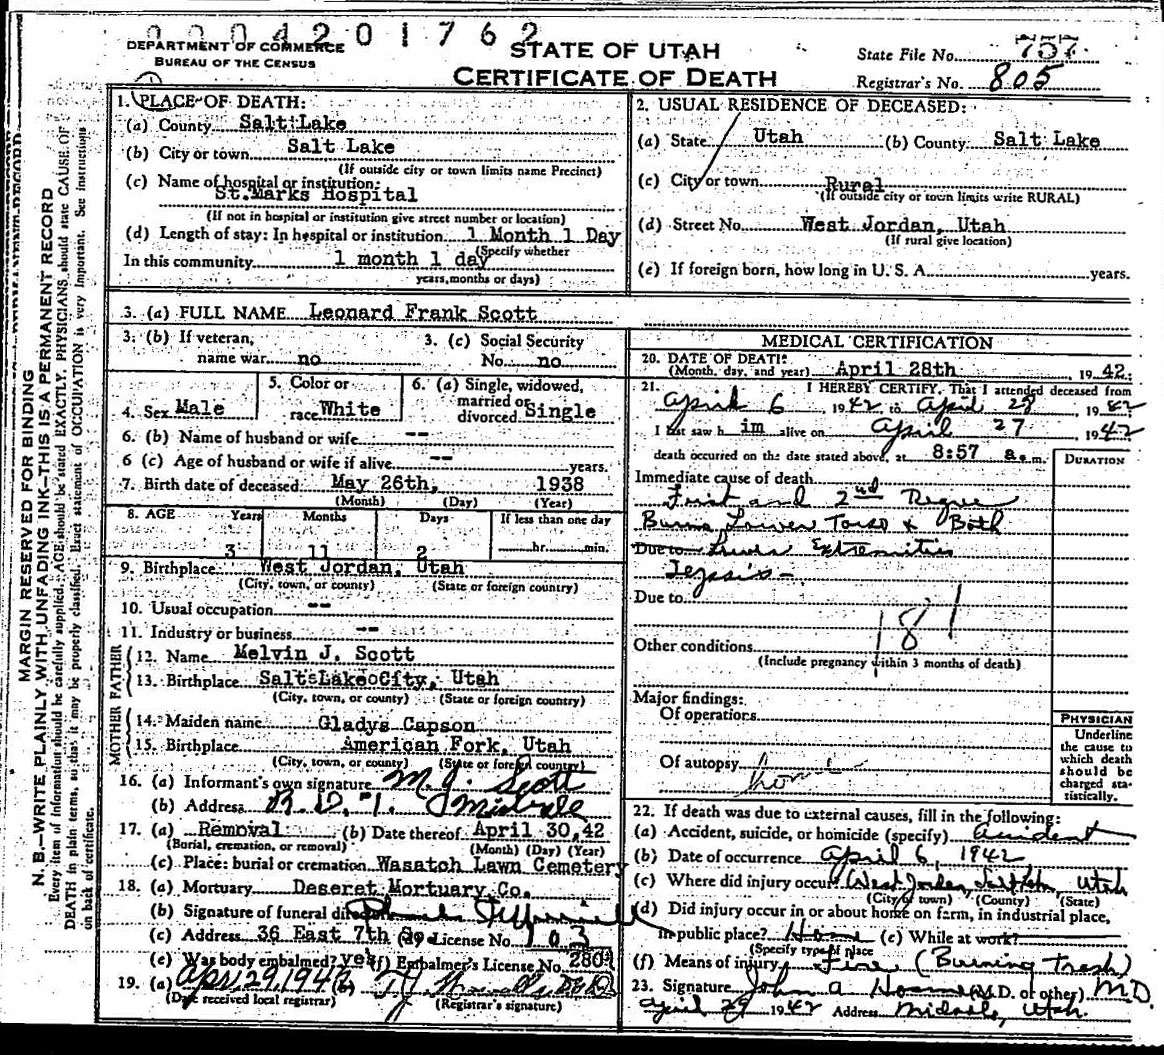 0 0 4 2 0 1 7 6 2
DEPARTMENT OF COMMERCE
BUREAU OF THE CENSUS
STATE OF UTAH
CERTIFICATE OF DEATH
State File No. 757
Registrar's No. 805
MARGIN RESERVED FOR BINDING
N. B.—WRITE PLAINLY WITH UNFADING INK—THIS IS A PERMANENT RECORD
Every item of information should be carefully supplied. AGE should be stated EXACTLY. PHYSICIANS should state CAUSE OF
DEATH in plain terms, so that it may be properly classified. Exact statement of OCCUPATION is very important. See instructions
on back of certificate.
1. PLACE OF DEATH:
(a) County Salt Lake
(b) City or town Salt Lake
(If outside city or town limits name Precinct)
(c) Name of hospital or institution:
St. Marks Hospital
(If not in hospital or institution give street number or location)
(d) Length of stay: In hospital or institution 1 Month 1 Day
(Specify whether
In this community 1 month 1 day
years, months or days)
2. USUAL RESIDENCE OF DECEASED:
(a) State Utah (b) County Salt Lake
(c) City or town Rural
(If outside city or town limits write RURAL)
(d) Street No. West Jordan, Utah
(If rural give location)
(e) If foreign born, how long in U. S. A. years.
3. (a) FULL NAME Leonard Frank Scott
3. (b) If veteran,
name war no
3. (c) Social Security
No. no
4. Sex Male
5. Color or
race White
6. (a) Single, widowed,
married or
divorced Single
6. (b) Name of husband or wife --
6 (c) Age of husband or wife if alive -- years.
7. Birth date of deceased May 26th, 1938
(Month) (Day) (Year)
8. AGE Years Months Days If less than one day
3 11 2 hr. min.
9. Birthplace West Jordan, Utah
(City, town, or county) (State or foreign country)
10. Usual occupation --
11. Industry or business --
FATHER
12. Name Melvin J. Scott
13. Birthplace Salt Lake City, Utah
(City, town, or county) (State or foreign country)
MOTHER
14. Maiden name Gladys Capson
15. Birthplace American Fork, Utah
(City, town, or county) (State or foreign country)
16. (a) Informant's own signature M. J. Scott
(b) Address R. D. #1. Midvale
17. (a) Removal (b) Date thereof April 30, 42
(Burial, cremation, or removal) (Month) (Day) (Year)
(c) Place: burial or cremation Wasatch Lawn Cemetery
18. (a) Mortuary Deseret Mortuary Co.
(b) Signature of funeral director
(c) Address 36 East 7th So. (d) License No. 103
(e) Was body embalmed? yes (f) Embalmer's License No. 280
19. (a) Apr. 29, 1942 (b)
(Date received local registrar) (Registrar's signature)
MEDICAL CERTIFICATION
20. DATE OF DEATH:
(Month, day, and year) April 28th 1942
21. I HEREBY CERTIFY, That I attended deceased from
April 6 1942 to April 28, 1942
I last saw h im alive on April 27, 1942
death occurred on the date stated above, at 8:57 a. m.
DURATION
Immediate cause of death
First and 2nd Degree
Burns Lower Torso & Both
Due to Lower Extremities
Sepsis-
Due to
181
Other conditions
(Include pregnancy within 3 months of death)
Major findings:
Of operations
Of autopsy none
PHYSICIAN
Underline
the cause to
which death
should be
charged sta-
tistically.
22. If death was due to external causes, fill in the following:
(a) Accident, suicide, or homicide (specify) accident
(b) Date of occurrence April 6, 1942
(c) Where did injury occur? West Jordan, Salt Lake, Utah
(City or town) (County) (State)
(d) Did injury occur in or about home on farm, in industrial place,
in public place? Home (e) While at work?
(Specify type of place
(f) Means of injury Fire (Burning Trash)
23. Signature John A (M.D. or other) M.D.
April 29 1942 Address Midvale, Utah.